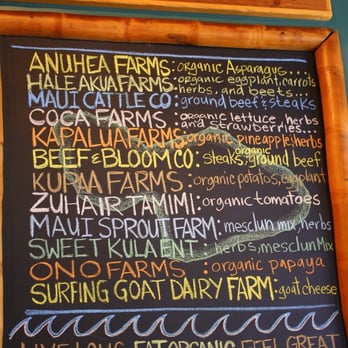 ANUHEA FARMS: organic Asparagus...
HALE AKUA FARMS: organic eggplant, carrots, herbs, and beets...
MAUI CATTLE CO: ground beef & steaks
COCA FARMS: organic lettuce, herbs and strawberries...
KAPALUA FARMS: organic pineapple, herbs
BEEF & BLOOM CO: steaks, organic ground beef
KUPAA FARMS: organic potatos, eggplant
ZUHAIR TAMIMI: organic tomatoes
MAUI SPROUT FARM: mesclun mix, herbs
SWEET KULA ENT: herbs, mesclun Mix
ONO FARMS: organic papaya
SURFING GOAT DAIRY FARM: goat cheese
LIVE LONG EAT ORGANIC FEEL GREAT